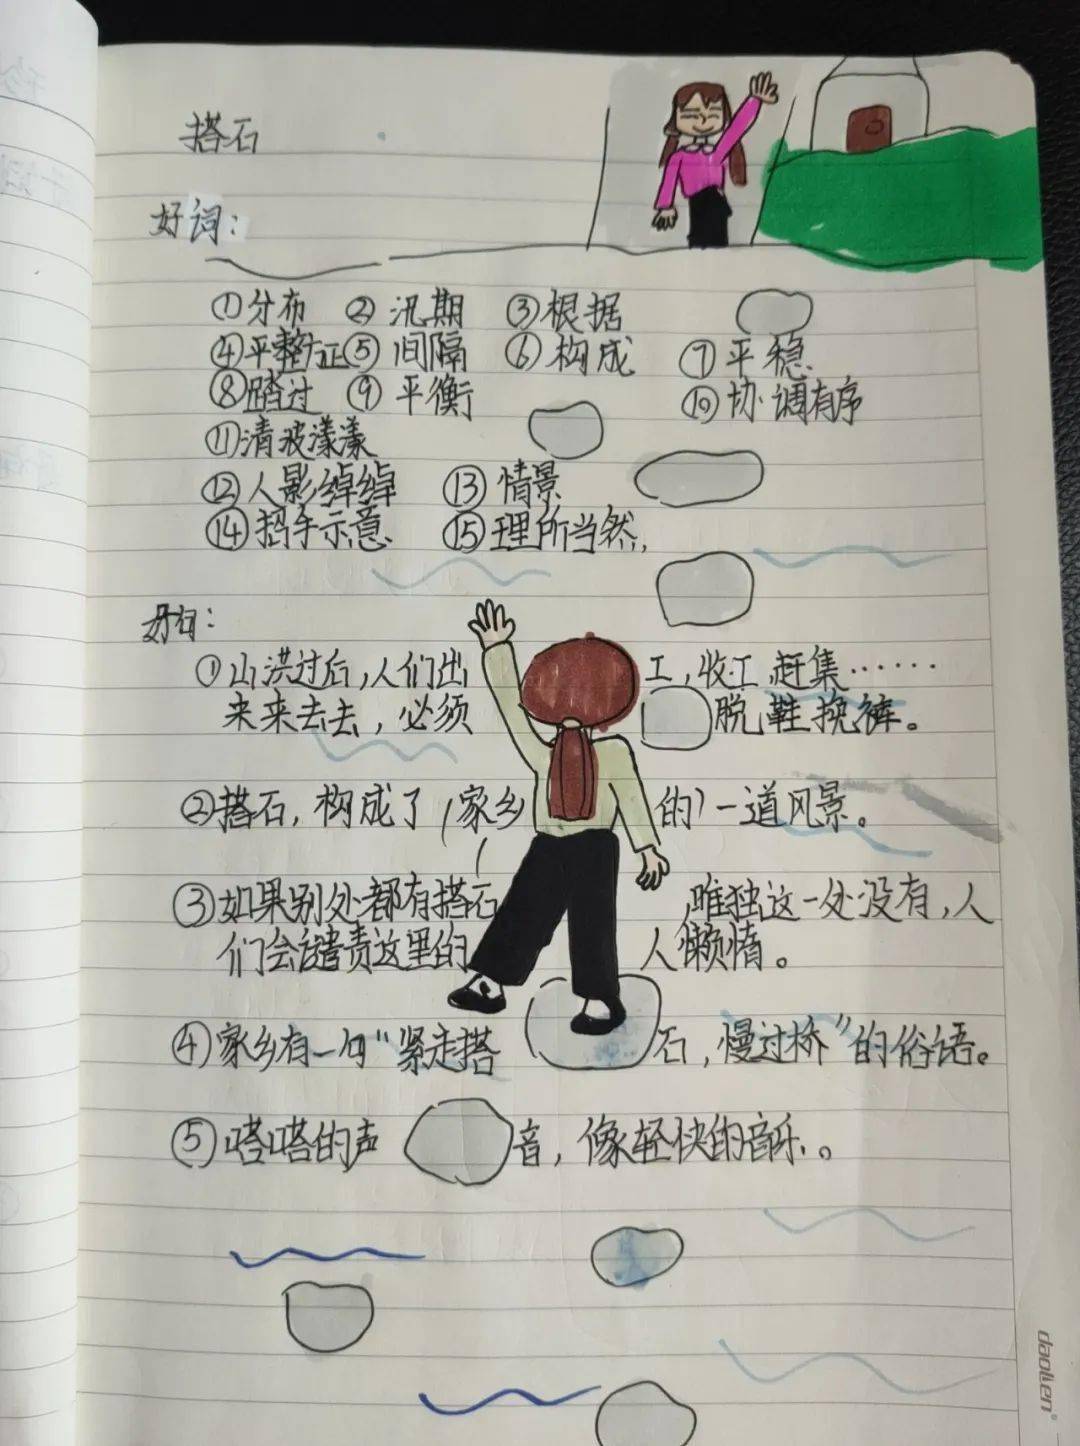 搭石
好词：
①分布 ②汛期 ③根据
④平整方正⑤间隔 ⑥构成 ⑦平稳
⑧踏过 ⑨平衡 ⑩协调有序
⑪清波漾漾
⑫人影绰绰 ⑬情景
⑭招手示意 ⑮理所当然，
好句：
①山洪过后，人们出工，收工，赶集……
来来去去，必须脱鞋挽裤。
②搭石，构成了（家乡的）一道风景。
③如果别处都有搭石，唯独这一处没有，人
们会谴责这里的人懒惰。
④家乡有一句“紧走搭石，慢过桥”的俗语。
⑤嗒嗒的声音，像轻快的音乐。
daolien